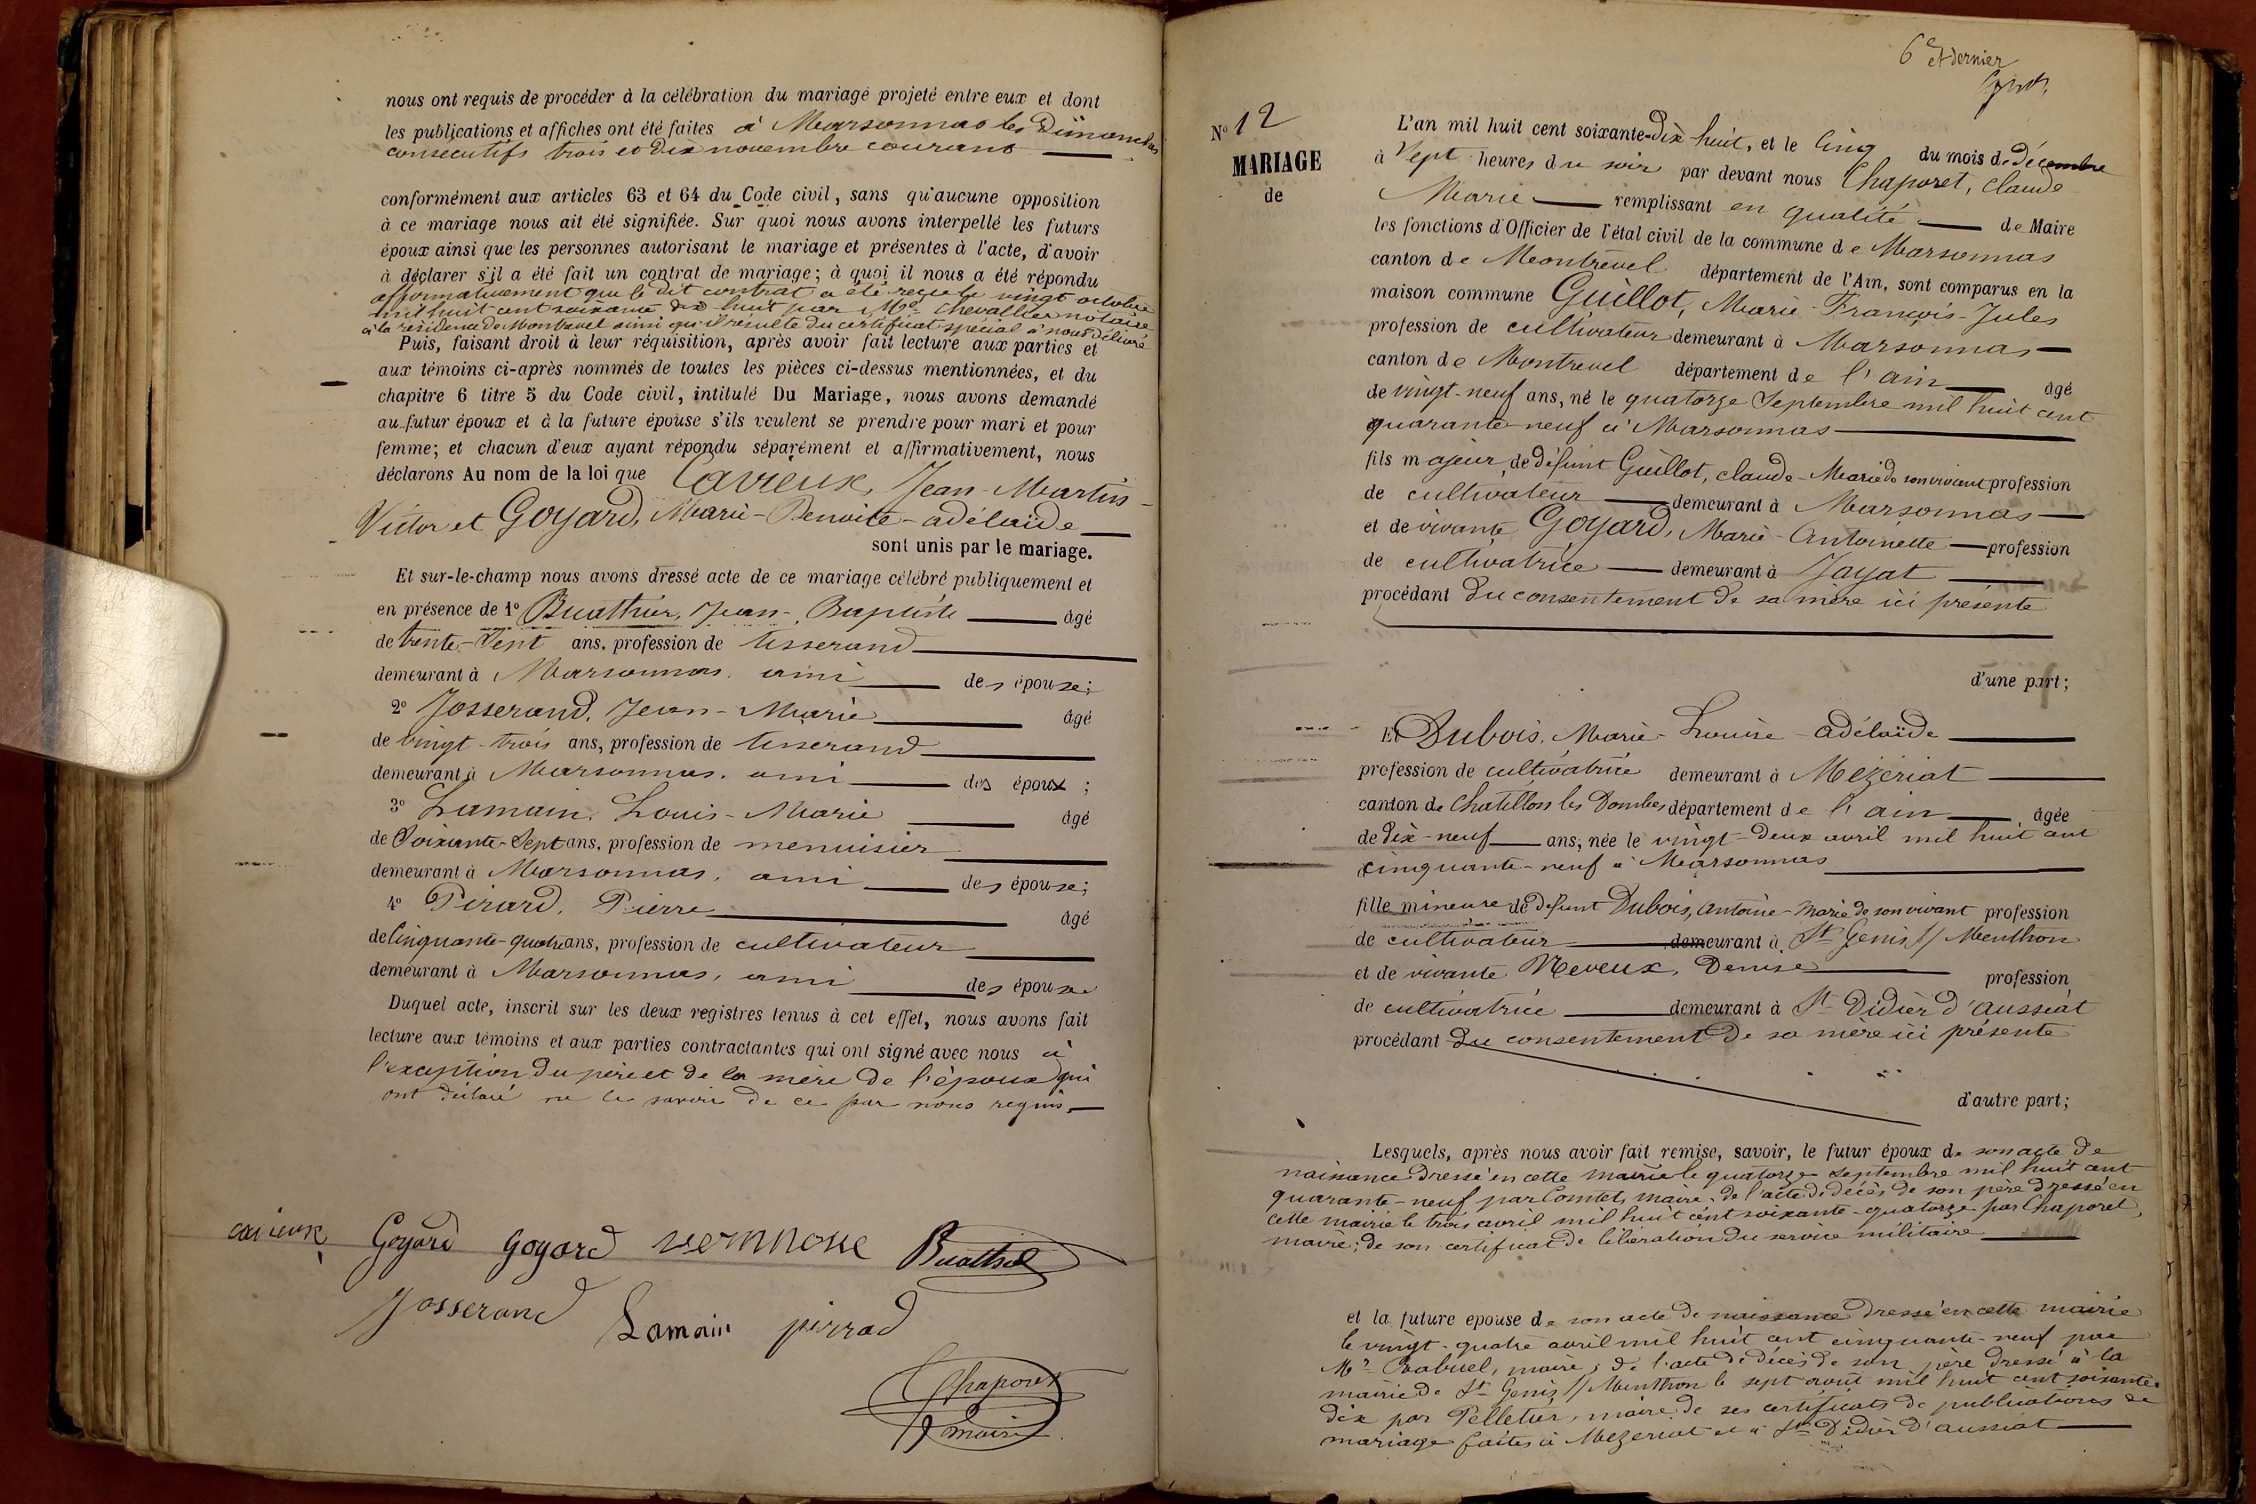 nous ont requis de procéder à la célébration du mariage projeté entre eux et dont
les publications et affiches ont été faites à Marsonnas les Dimanches
consecutifs trois et dix novembre courant
conformément aux articles 63 et 64 du Code civil, sans qu'aucune opposition
à ce mariage nous ait été signifiée. Sur quoi nous avons interpellé les futurs
époux ainsi que les personnes autorisant le mariage et présentes à l'acte, d'avoir
à déclarer s'il a été fait un contrat de mariage; à quoi il nous a été répondu
affirmativement que le dit contrat a été reçu le vingt octobre
mil huit cent soixante dix huit par Me Chevallier notaire
à la résidence de Montrevel ainsi qu'il résulte du certificat spécial à nous délivré
Puis, faisant droit à leur réquisition, après avoir fait lecture aux parties et
aux témoins ci-après nommés de toutes les pièces ci-dessus mentionnées, et du
chapitre 6 titre 5 du Code civil, intitulé Du Mariage, nous avons demandé
au futur époux et à la future épouse s'ils veulent se prendre pour mari et pour
femme; et chacun d'eux ayant répondu séparément et affirmativement, nous
déclarons Au nom de la loi que Cavieux, Jean-Martin-
Victor et Goyard, Marie-Benoite-adélaïde
sont unis par le mariage.
Et sur-le-champ nous avons dressé acte de ce mariage célébré publiquement et
en présence de 1° Buathier, Jean-Baptiste âgé
de trente-Sept ans, profession de tisserand
demeurant à Marsonnas, ami des épouse;
2° Josserand, Jean-Marie âgé
de vingt-trois ans, profession de tisserand
demeurant à Marsonnas, ami des époux;
3° Lamain, Louis-Marie âgé
de Soixante-Sept ans, profession de menuisier
demeurant à Marsonnas, ami des épouse;
4° Pirard, Pierre âgé
de Cinquante-quatre ans, profession de cultivateur
demeurant à Marsonnas, ami des épouse
Duquel acte, inscrit sur les deux registres tenus à cet effet, nous avons fait
lecture aux témoins et aux parties contractantes qui ont signé avec nous à
l'exception du père et de la mère de l'époux qui
ont déclaré ne le savoir de ce par nous requis
cavieux Goyard goyard Buathier
Josserand Lamain pirrad
Chaporet
maire
6e et dernier
N° 12
MARIAGE
de
L'an mil huit cent soixante-Dix huit, et le Cinq du mois de décembre
à Sept heures du soir par devant nous Chaporet, Claude
Marie remplissant en qualité de Maire
les fonctions d'Officier de l'état civil de la commune de Marsonnas
canton de Montrevel département de l'Ain, sont comparus en la
maison commune Guillot, Marie-François-Jules
profession de cultivateur demeurant à Marsonnas
canton de Montrevel département de l'ain âgé
de vingt-neuf ans, né le quatorze Septembre mil huit cent
quarante-neuf à Marsonnas
fils majeur de défunt Guillot, claude-Marie de son vivant profession
de cultivateur demeurant à Marsonnas
et de vivante Goyard, Marie-Antoinette profession
de cultivatrice demeurant à Jayat
procédant du consentement de sa mère ici présente
d'une part;
Et Dubois, Marie-Louise-adélaïde
profession de cultivatrice demeurant à Mézériat
canton de Chatillon les Dombes département de l'ain âgée
de dix-neuf ans, née le vingt-deux avril mil huit cent
cinquante-neuf à Marsonnas
fille mineure de défunt Dubois, Antoine-Marie de son vivant profession
de cultivateur demeurant à St Genis s/ Menthon
et de vivante Neveux, Denise profession
de cultivatrice demeurant à St Didier d'aussiat
procédant du consentement de sa mère ici présente
d'autre part;
Lesquels, après nous avoir fait remise, savoir, le futur époux de son acte de
naissance dressé en cette mairie le quatorze septembre mil huit cent
quarante-neuf par Comtet, maire; de l'acte de décès de son père dressé en
cette mairie le trois avril mil huit cent soixante-quatorze par Chaporet,
maire; de son certificat de libération du service militaire
et la future épouse de son acte de naissance dressé en cette mairie
le vingt-quatre avril mil huit cent cinquante-neuf par
Mr maire; de l'acte de décès de son père dressé à la
mairie de St Genis s/ Menthon le sept août mil huit cent soixante-
dix par Pelletier, maire, de ses certificats de publications de
mariage faites à Mézériat et à St Didier d'aussiat